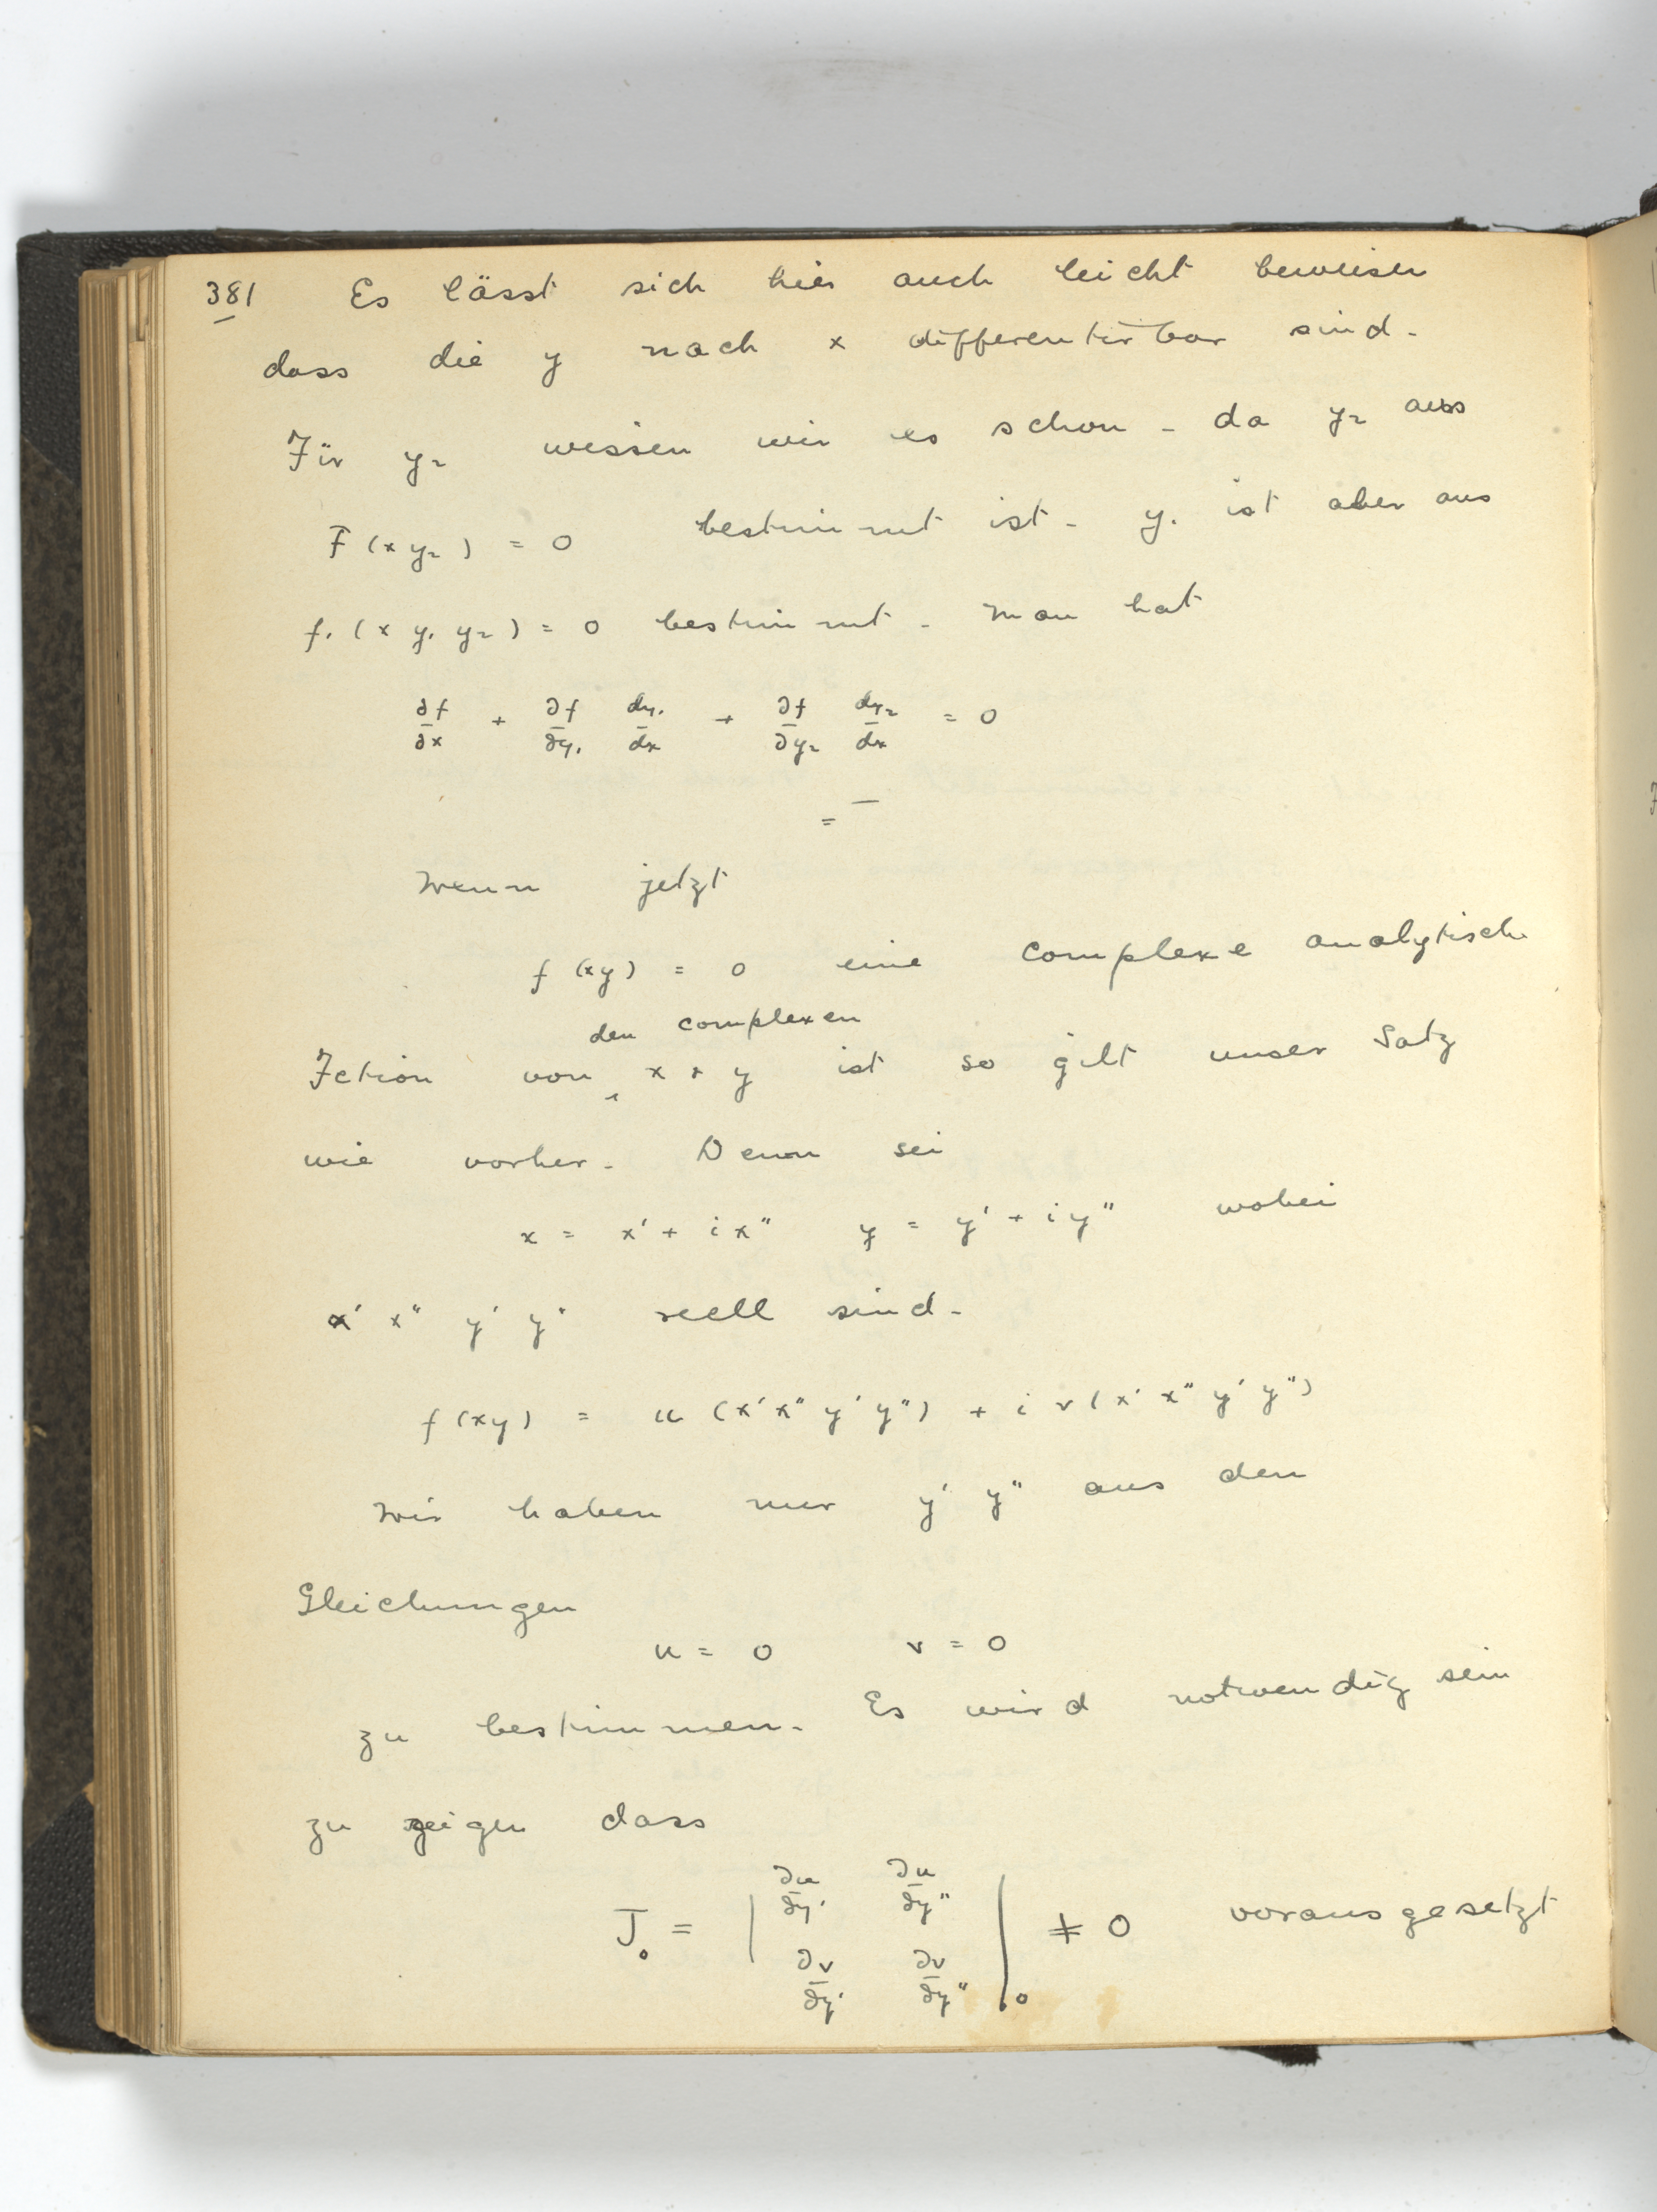 381 Es lässt sich hier auch leicht beweisen
dass die y nach x differentirbar sind.
Für y₂ wissen wir es schon - da y₂ aus
F (x y₂) = 0 bestimmt ist - y₁ ist aber aus
f₁ (x y₁ y₂) = 0 bestimmt. Man hat
∂f/∂x + ∂f/∂y₁ dy₁/dx + ∂f/∂y₂ dy₂/dx = 0
Wenn jetzt
f (xy) = 0 eine complexe analytische
den complexen
Fction von x + y ist so gilt unser Satz
wie vorher. Denn sei
x = x' + i x" y = y' + i y" wobei
x' x" y' y" reell sind.
f (xy) = u (x' x" y' y") + i v (x' x" y' y")
Wir haben nur y' y" aus den
Gleichungen
u = 0 v = 0
zu bestimmen. Es wird notwendig sein
zu zeigen dass
J₀ = | ∂u/∂y' ∂u/∂y" |
| ∂v/∂y' ∂v/∂y" |₀ ≠ 0 vorausgesetzt